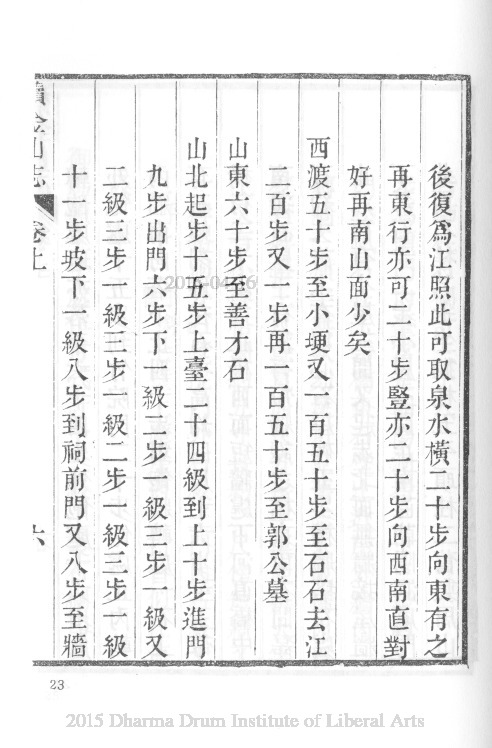 後復爲江照此可取泉水橫二十步向東有之
再東行亦可二十步豎亦二十步向西南直對
好再南山面少矣
西渡五十步至小埂又一百五十步至石石去江
二百步又一步再一百五十步至郭公墓
山東六十步至善才石
山北起步十五步上臺二十四級到上十步進門
九步出門六步下一級二步一級三步一級又
二級三步一級三步一級二步一級三步一級
十一步坡下一級八步到祠前門又八步至牆
續金山志
卷上
六
23
2015 Dharma Drum Institute of Liberal Arts